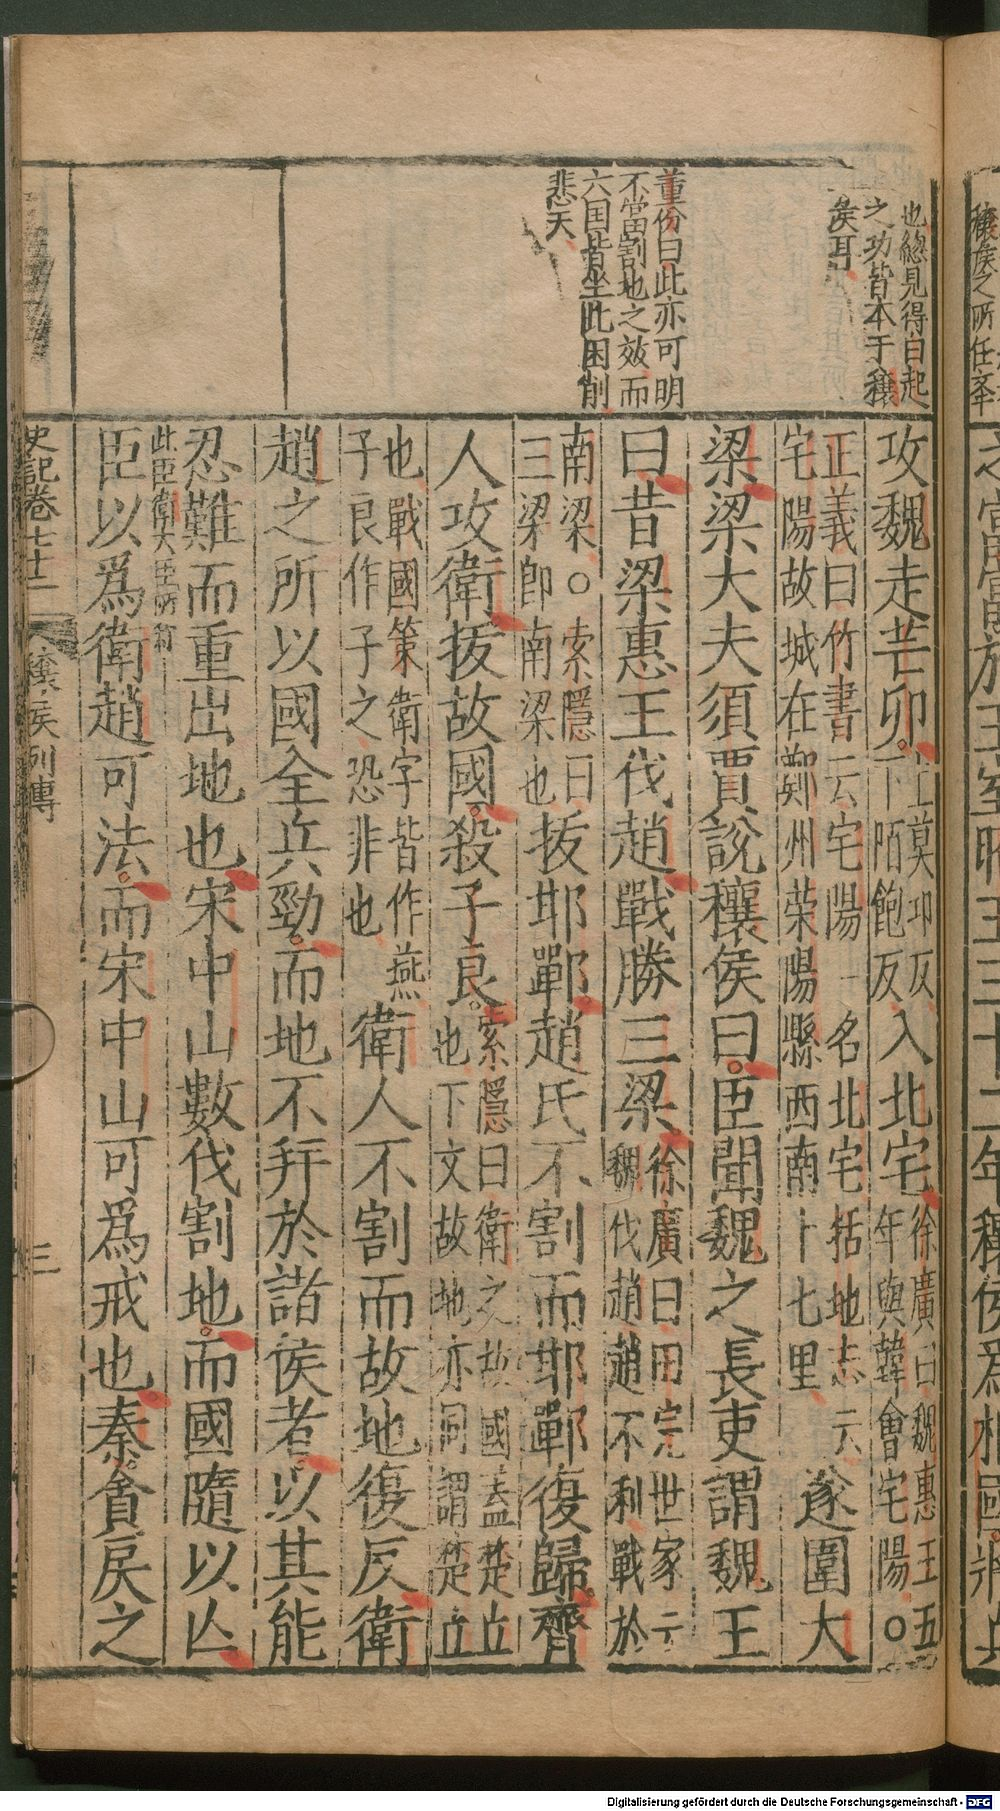 穰侯之所任舉
也總見得白起
之功皆本于穰
侯耳
董份曰此亦可明
不當割地之效而
六国皆坐此困削
悲夫
攻魏走芒卯
上莫卬反
下陌飽反
入北宅
徐廣曰魏惠王五
年與韓會宅陽○
正義曰竹書云宅陽一名北宅括地志云
宅陽故城在鄭州荣陽縣西南十七里
遂圍大
梁梁大夫須賈說穰侯曰臣聞魏之長吏謂魏王
曰昔梁惠王伐趙戰勝三梁
徐廣曰田完世家云
魏伐趙趙不利戰於
南梁○索隱曰
三梁即南梁也
拔邯鄲趙氏不割而邯鄲復歸齊
人攻衛拔故國殺子良
索隱曰衛之故國蓋楚丘
也下文故地亦同謂楚丘
也戰國策衛字皆作燕
子良作子之恐非也
衛人不割而故地復反衛
趙之所以國全兵勁而地不并於諸侯者以其能
忍難而重出地也宋中山數伐割地而國隨以亾
此臣衛大臣所
臣以爲衛趙可法而宋中山可爲戒也秦貪戾之
史記卷七十二
穰侯列傳
三
Digitalisierung gefördert durch die Deutsche Forschungsgemeinschaft - DFG